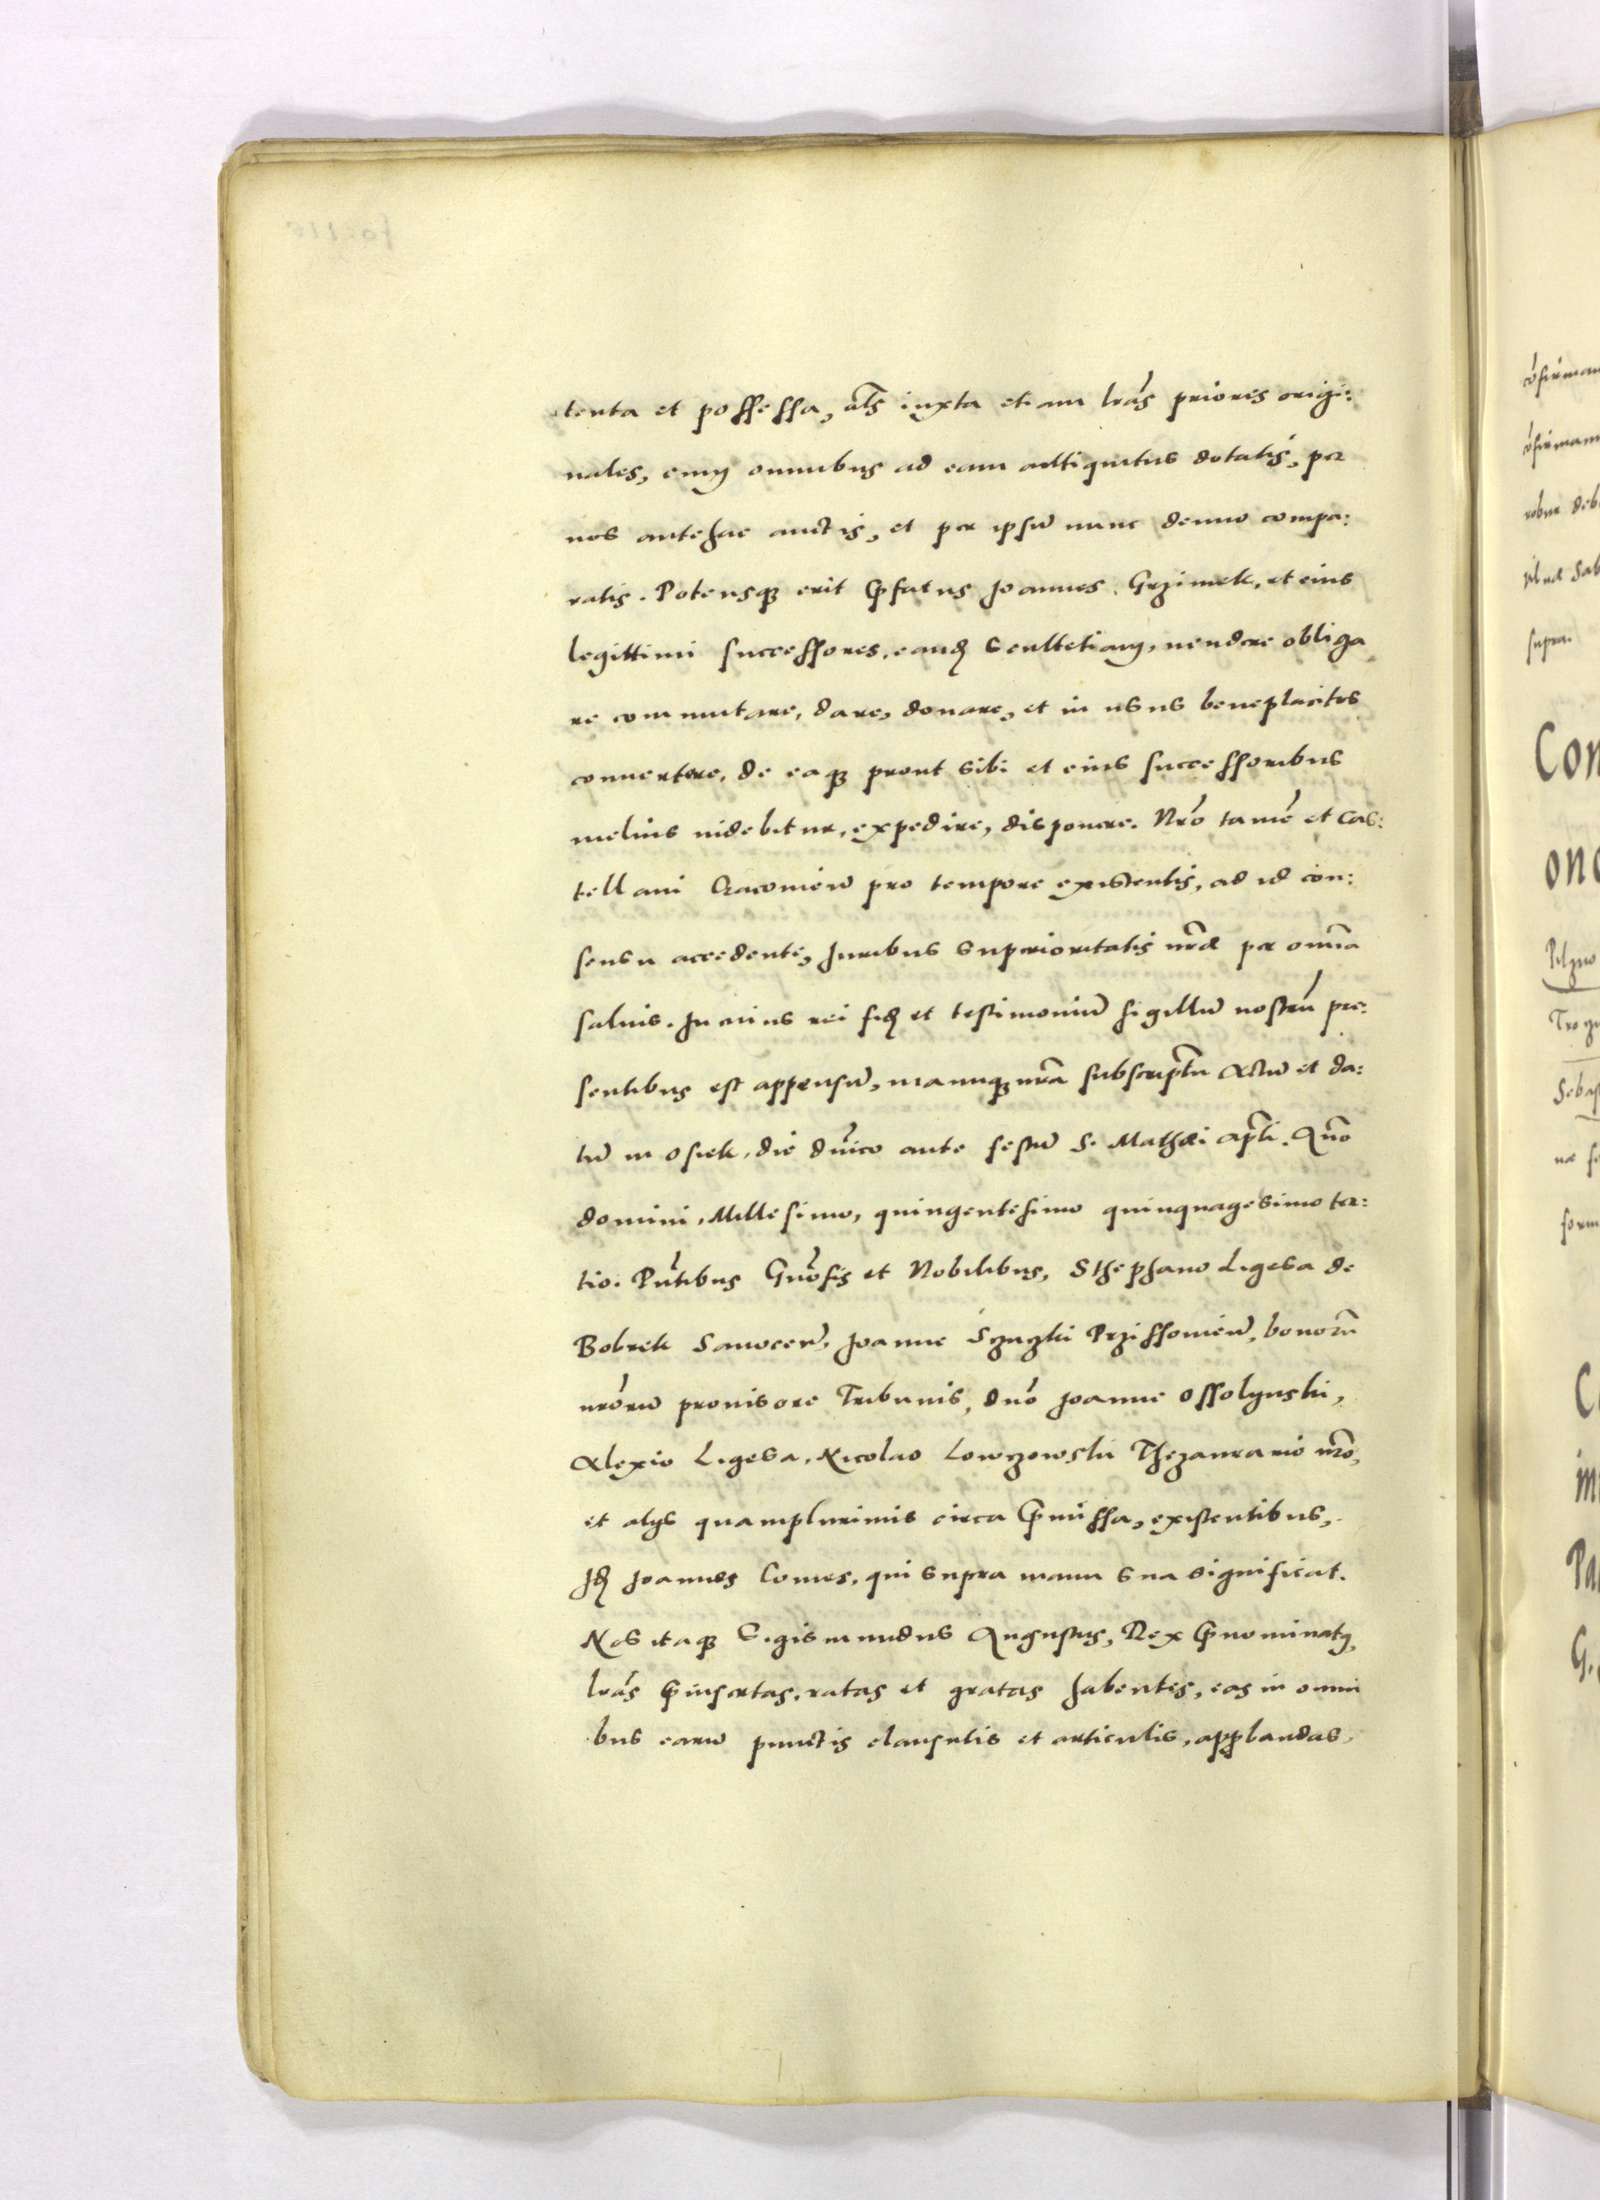 tenta et possessa, alŝ iuxta etiam lrás priores origi:
nales, cum omnibus ad eam antiquitus dotatis, per
nos antehac auctis, et per ipsū nunc denuo compa:
ratis. Potensq3 erit p̄fatus Joannes Grzimek, et eius
legittimi successores, eandē Scultetiam, uendere obliga
re commutare, dare, donare, et in usus beneplacitos
conuertere, de eaq3 prout sibi et eius successoribus
melius uidebitur, expedire, disponere. Nrō tamē et Cas:
tellani Cracouieñ pro tempore existentis, ad id con:
sensu accedente, Juribus superioritatis nrae per omīa
saluis. In cuius rei fidē et testimoniū sigillū nostrū pre:
sentibus est appensū, manuq3 nrā subscriptū Actū et da:
tū in Osiek, die dnīco ante festū S. Mathæi apłi. Añno
domini, Millesimo, quingentesimo quinquagesimo ter:
tio. Pñtibus Gñosis et Nobilibus, Sthephano Ligesa de
Bobrek Sanoceñ, Joanne Szuzki Przissouieñ, bonorū
nrórū prouisore Tribunis, dnō Joanne Ossolynski,
Alexio Ligesa, Nicolao Lowczowski Thezaurario nrō,
et alys quamplurimis circa p̄missa, existentibus,
Idē Joannes Comes, qui supra manu sua significat.
Nos itaq3 Sigismundus Augustus, Rex p̄nominatus,
lrás p̄insertas, ratas et gratas habentes, eas in omni
bus earū punctis clausulis et articulis, approbandas,
cōfirman
cōfirmam
robur deb
supra.
Con
ono
Pilzno
Sebas
form
C
G.